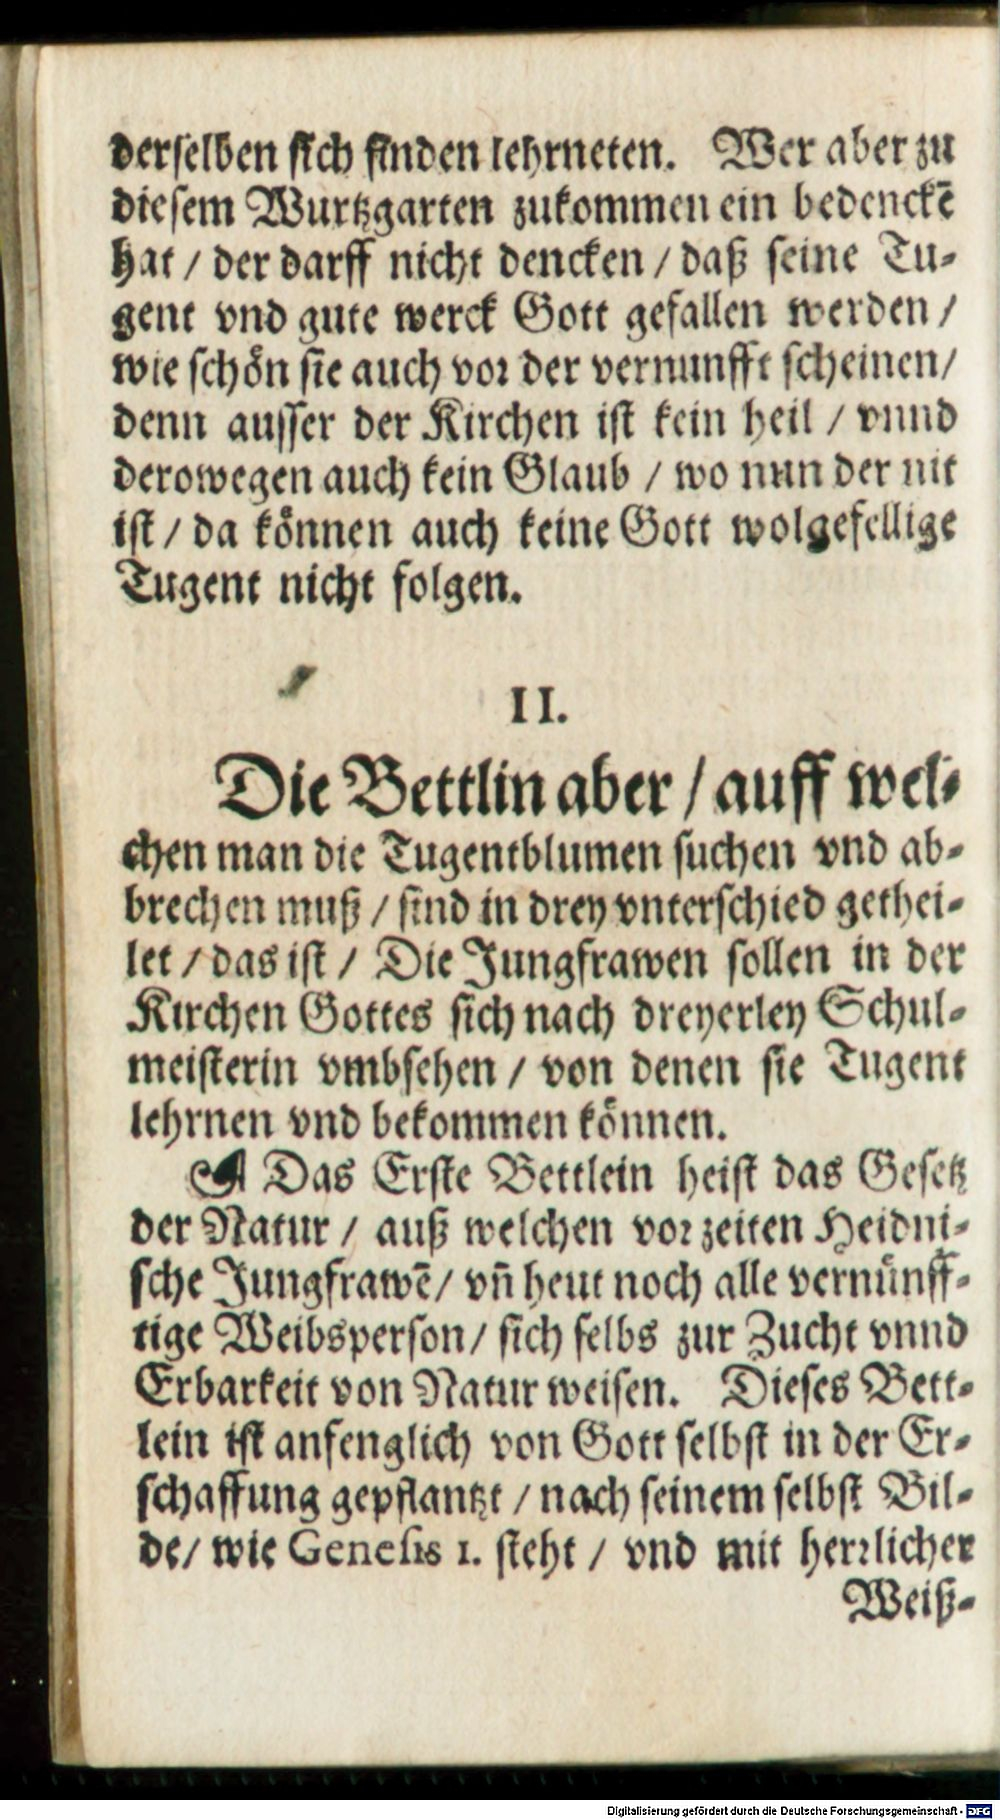 derselben sich finden lehrneten. Wer aber zu
diesem Wurtzgarten zukommen ein bedenckē
hat / der darff nicht dencken / daß seine Tu-
gent vnd gute werck Gott gefallen werden /
wie schön sie auch vor der vernunfft scheinen /
denn ausser der Kirchen ist kein heil / vnnd
derowegen auch kein Glaub / wo nun der nit
ist / da können auch keine Gott wolgefellige
Tugent nicht folgen.
II.
Die Bettlin aber / auff wel-
chen man die Tugentblumen suchen vnd ab-
brechen muß / sind in drey vnterschied gethei-
let / das ist / Die Jungfrawen sollen in der
Kirchen Gottes sich nach dreyerley Schul-
meisterin vmbsehen / von denen sie Tugent
lehrnen vnd bekommen können.
☙ Das Erste Bettlein heist das Gesetz
der Natur / auß welchen vor zeiten Heidni-
sche Jungfrawē / vn̄ heut noch alle vernünff-
tige Weibsperson / sich selbs zur Zucht vnnd
Erbarkeit von Natur weisen. Dieses Bett-
lein ist anfenglich von Gott selbst in der Er-
schaffung gepflantzt / nach seinem selbst Bil-
de / wie Genesis 1. steht / vnd mit herrlicher
Weiß-
Digitalisierung gefördert durch die Deutsche Forschungsgemeinschaft - DFG